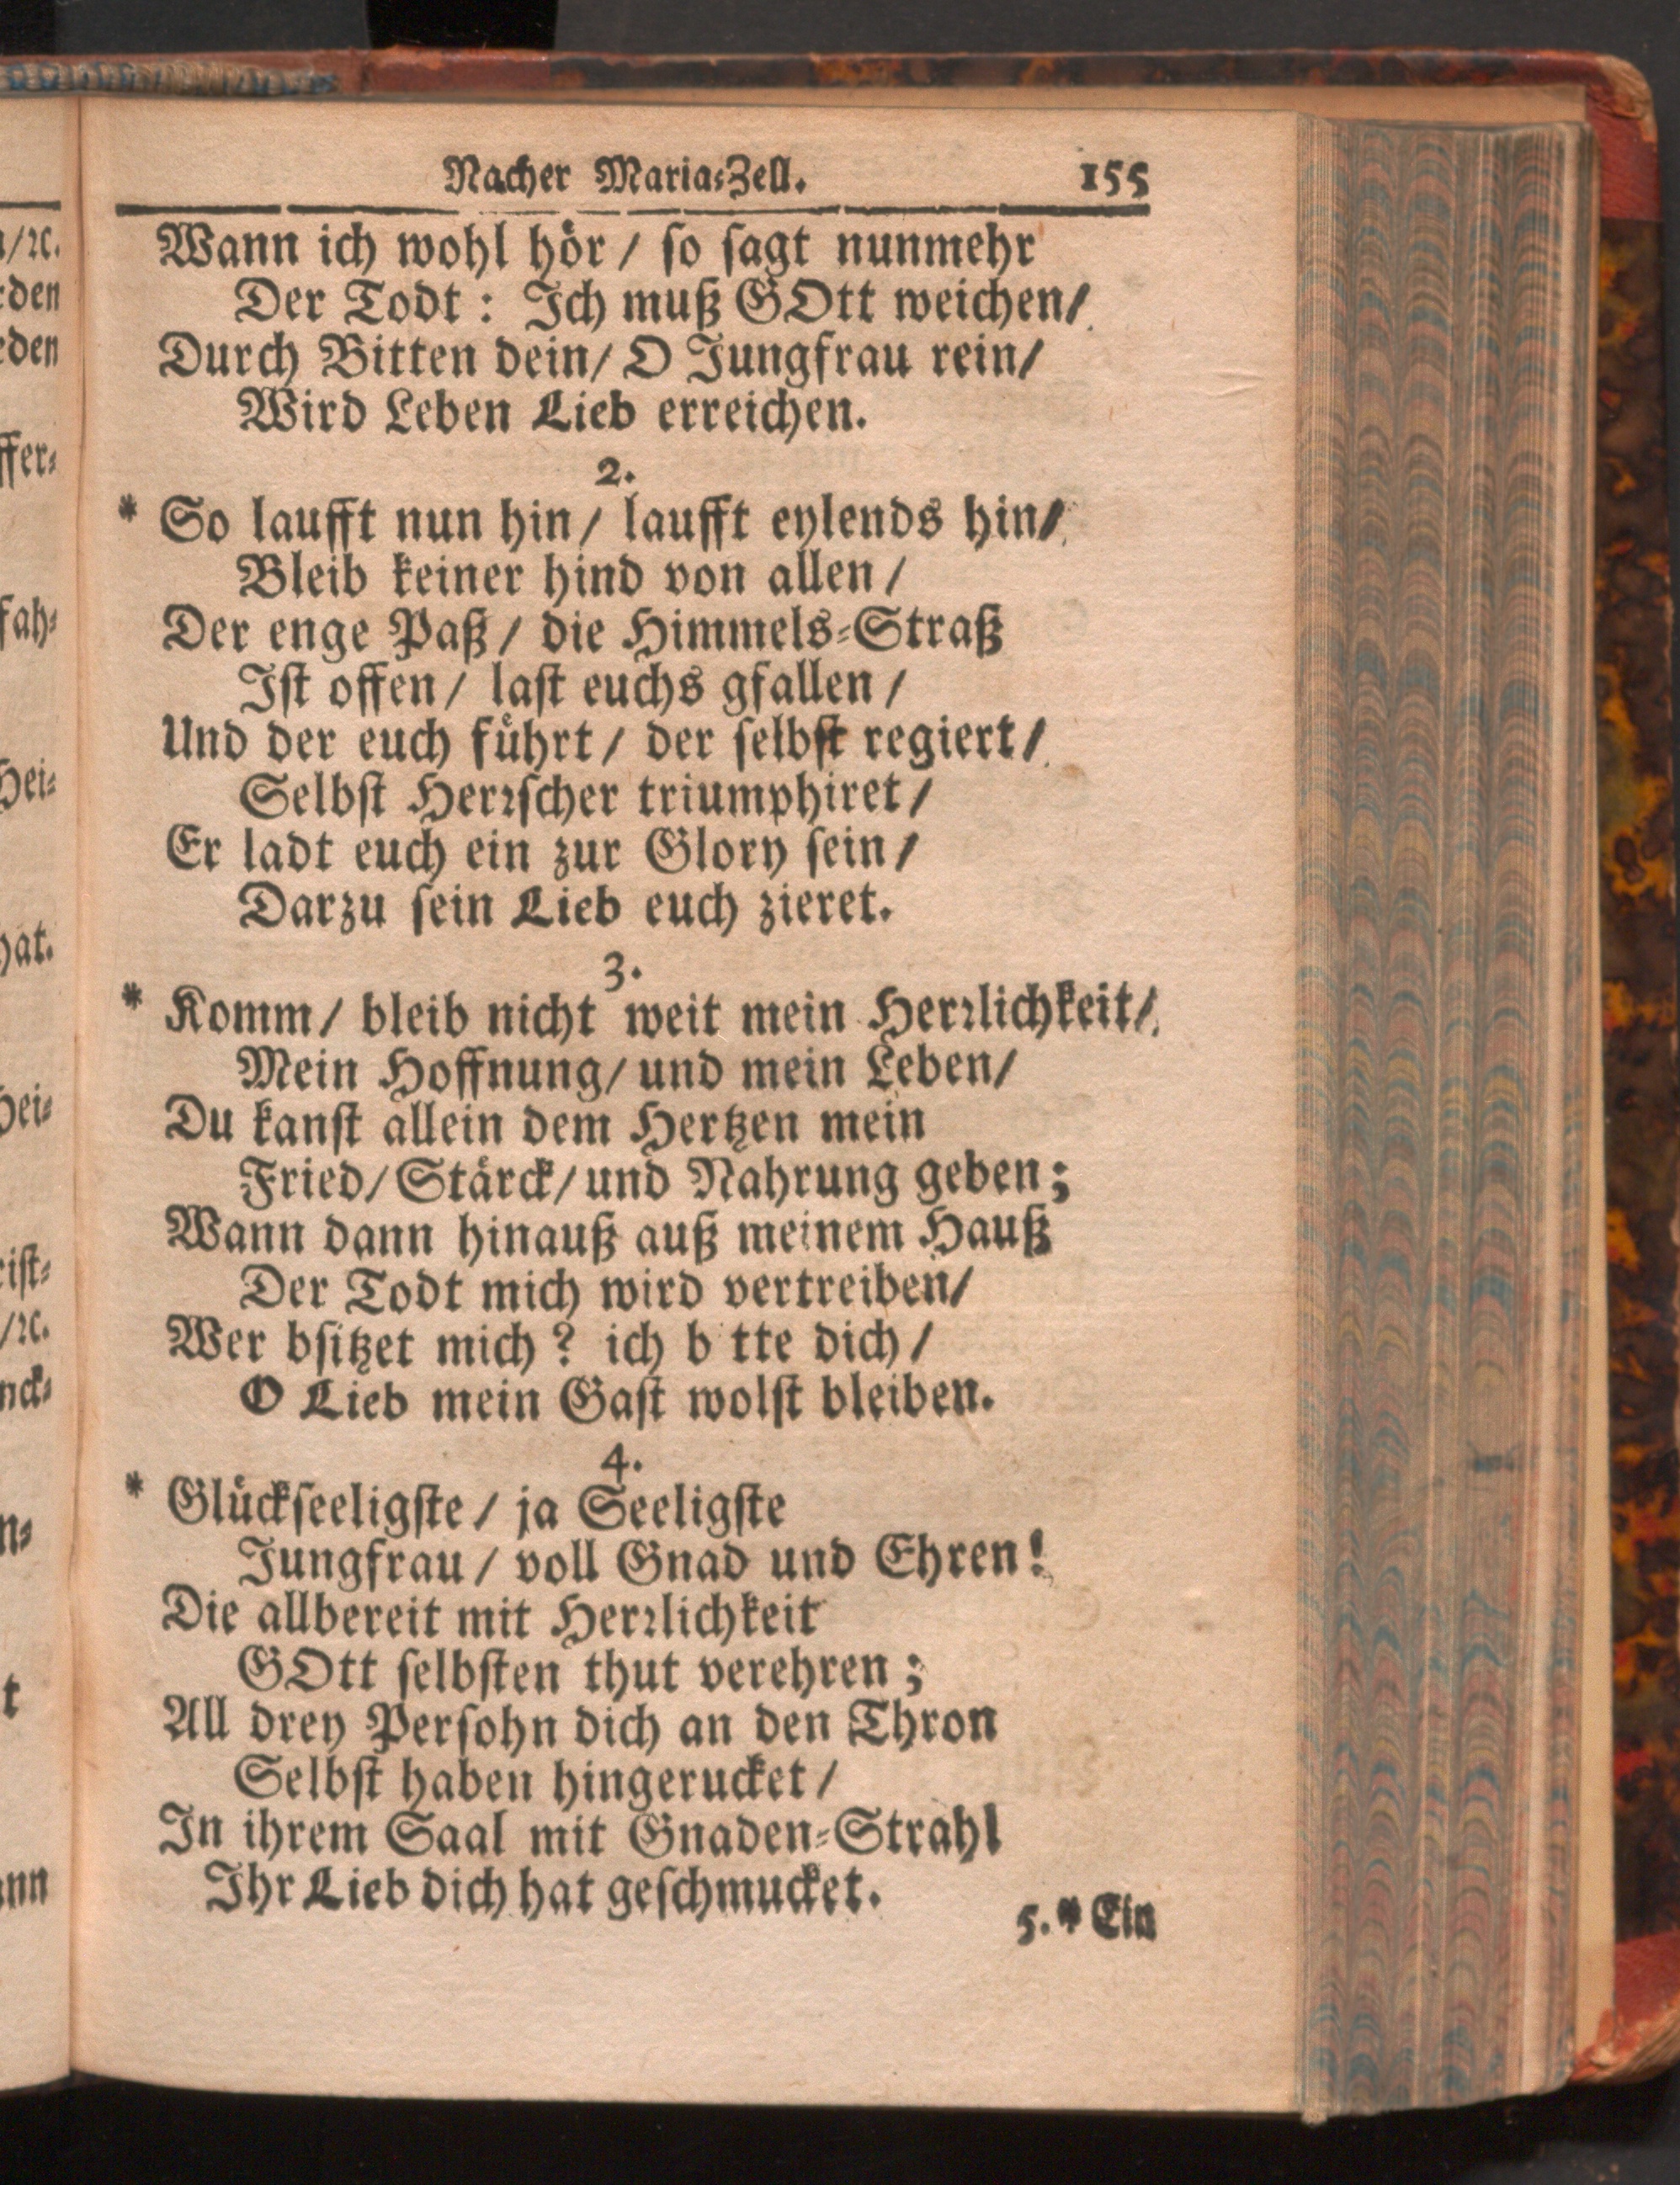 Nacher Maria-Zell. 155
Wann ich wohl hör / so sagt nunmehr
Der Todt : Ich muß GOtt weichen/
Durch Bitten dein/ O Jungfrau rein/
Wird Leben Lieb erreichen.
2.
* So laufft nun hin/ laufft eylends hin/
Bleib keiner hind von allen /
Der enge Paß / die Himmels-Straß
Ist offen/ last euchs gfallen /
Und der euch führt / der selbst regiert /
Selbst Herrscher triumphiret /
Er ladt euch ein zur Glory sein /
Darzu sein Lieb euch zieret.
3.
* Komm/ bleib nicht weit mein Herrlichkeit/
Mein Hoffnung/ und mein Leben/
Du kanst allein dem Hertzen mein
Fried/ Stärck/ und Nahrung geben;
Wann dann hinauß auß meinem Hauß
Der Todt mich wird vertreiben/
Wer bsitzet mich ? ich b tte dich /
O Lieb mein Gast wolst bleiben.
4.
* Glückseeligste / ja Seeligste
Jungfrau / voll Gnad und Ehren!
Die allbereit mit Herrlichkeit
GOtt selbsten thut verehren ;
All drey Persohn dich an den Thron
Selbst haben hingerucket /
In ihrem Saal mit Gnaden-Strahl
Ihr Lieb dich hat geschmucket.
5. * Ein